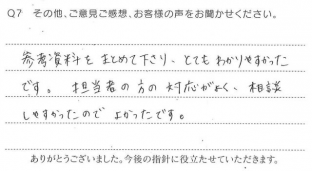 Q7 その他、ご意見ご感想、お客様の声をお聞かせください。
参考資料をまとめて下さり、とてもわかりやすかった
です。担当者の方の対応がよく、相談
しやすかったので よかったです。
ありがとうございました。今後の指針に役立たせていただきます。